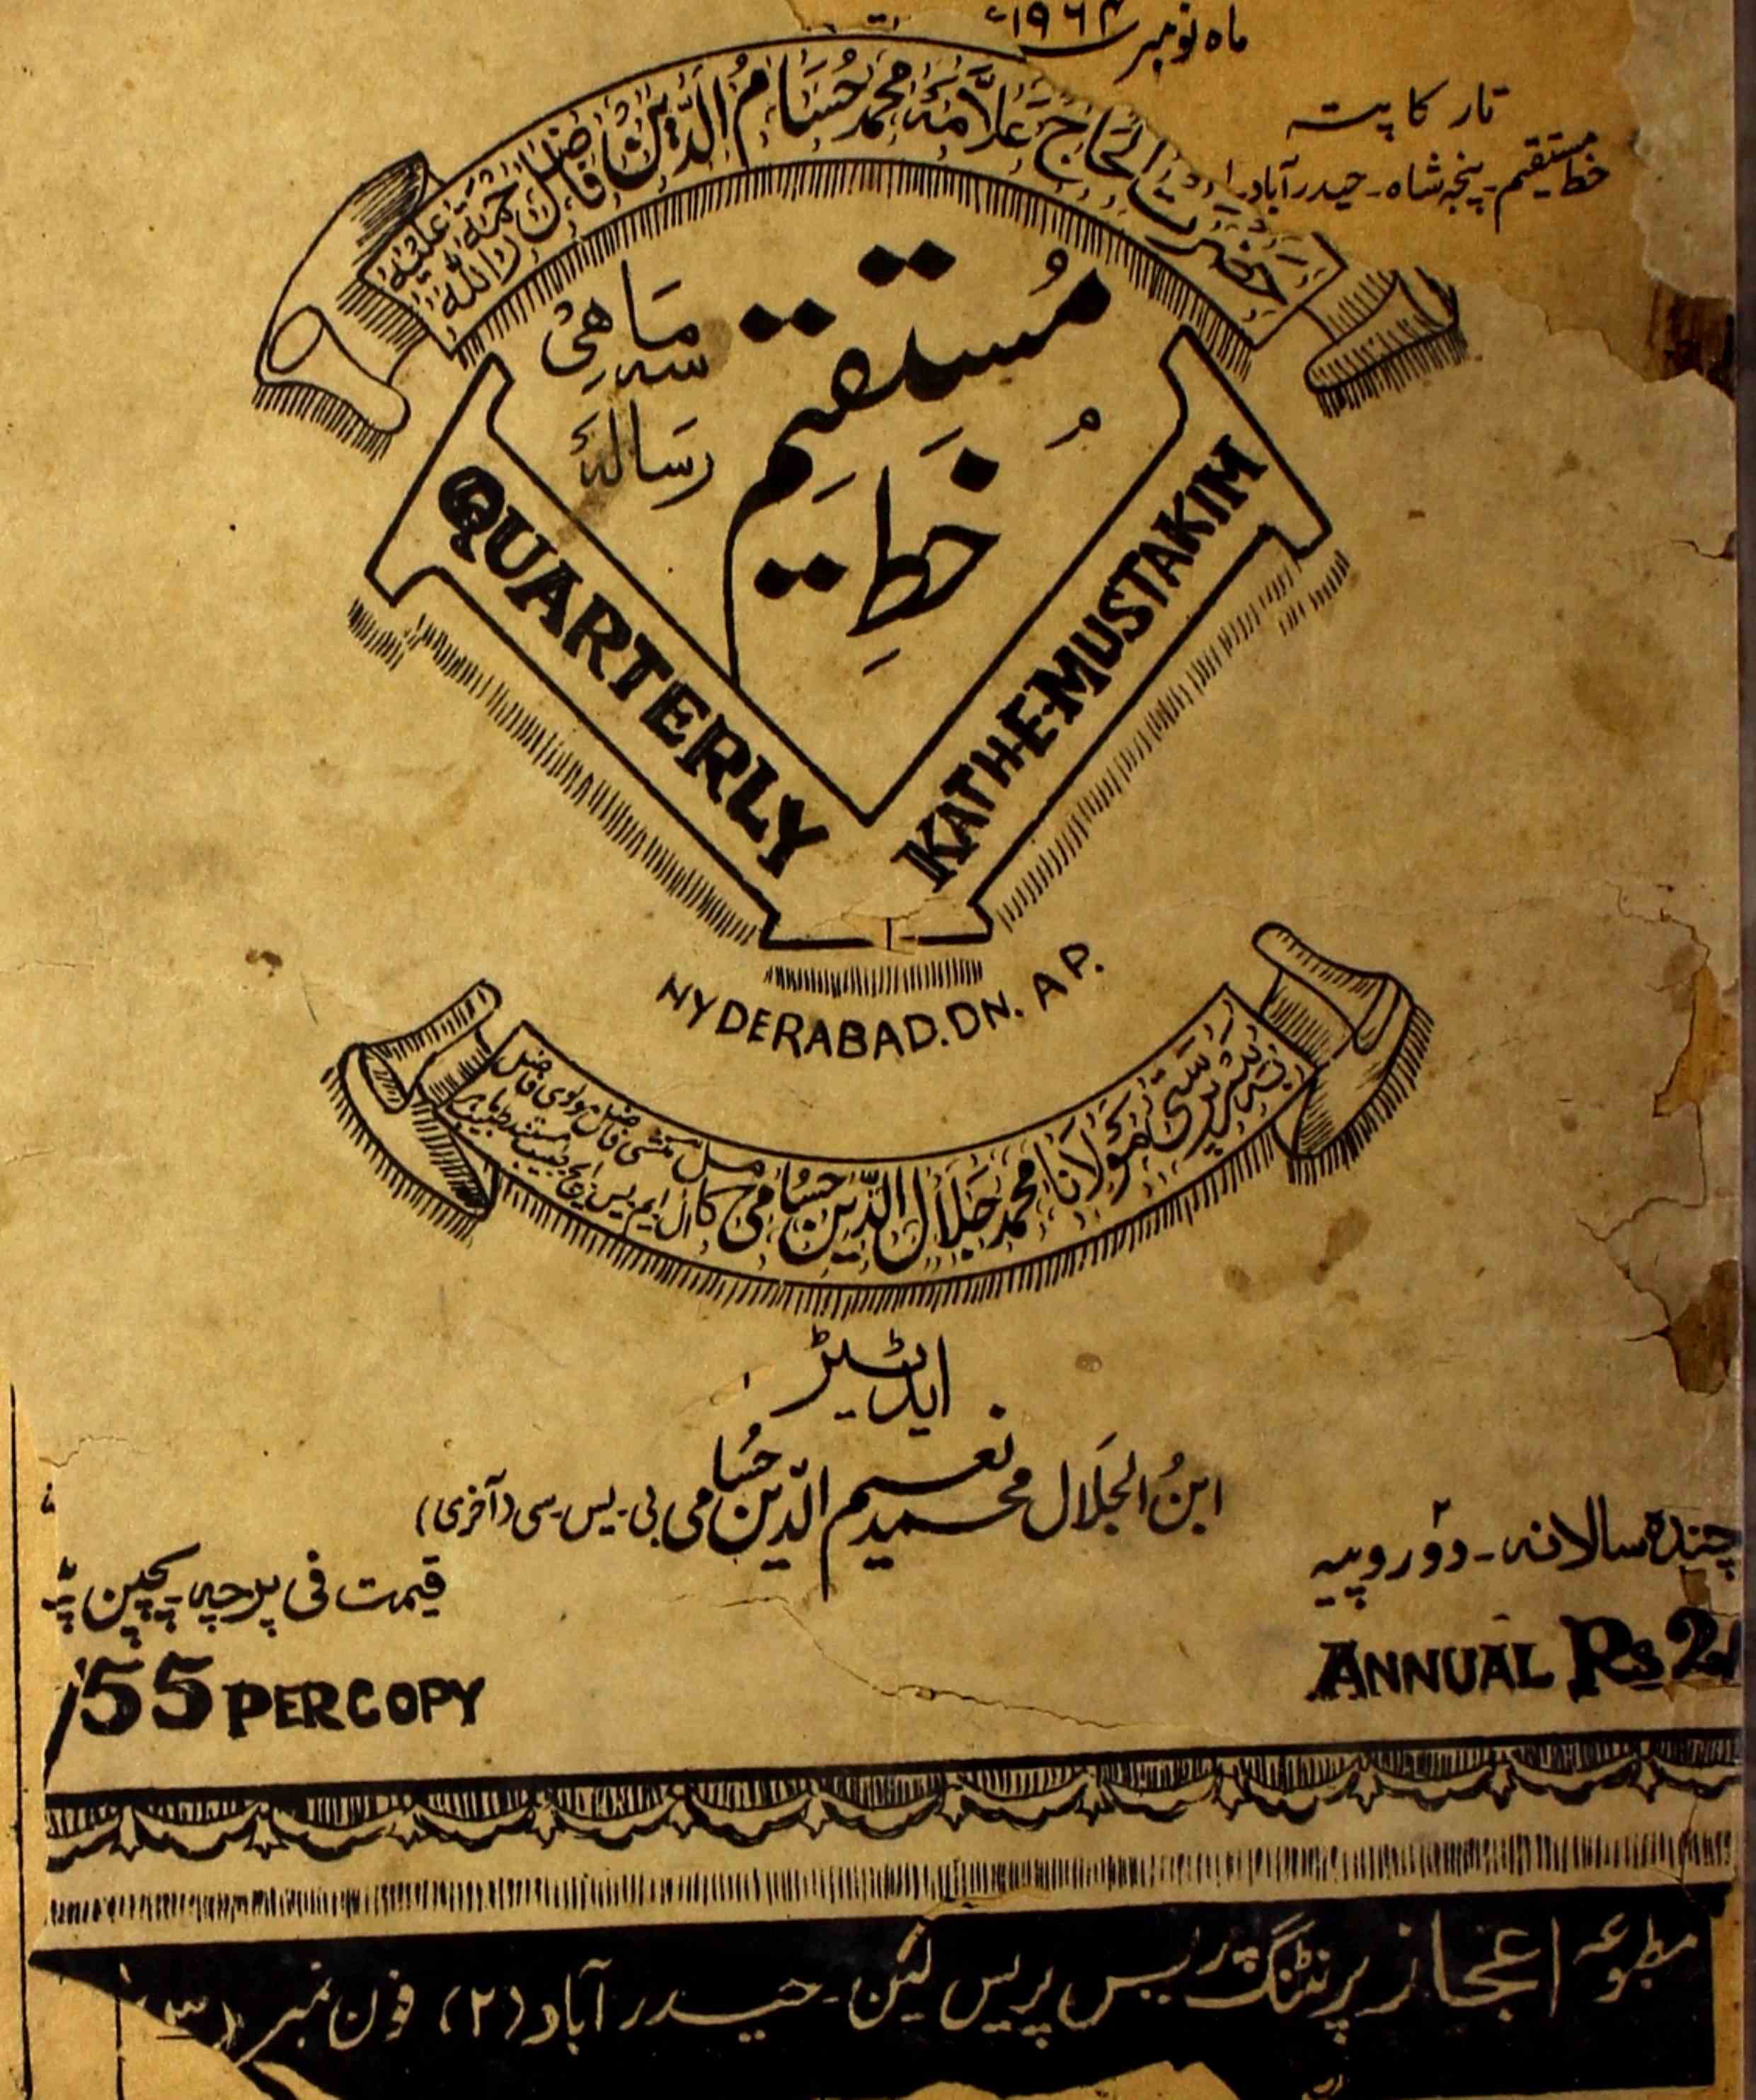 ماہ نومبر ۱۹۶۴ء
تار کا پتہ
خط مستقیم۔ پنجہ شاہ۔ حیدرآباد۔
حضرت الحاج علامہ محمد حسام الدین فاضل رحمۃ اللہ علیہ
سہ ماہی
رسالہ
خط مستقیم
QUARTERLY
KATH-E-MUSTAKIM
HYDERABAD.DN. A P.
بہ سرپرستی مولانا محمد جلال الدین حسامی کامل
منشی فاضل مولوی فاضل
ایڈیٹر
ابن الجلال محمد نعیم الدین حسامی بی۔یس۔سی (آخری)
چندہ سالانہ۔ دو روپیہ
ANNUAL Rs 2
قیمت فی پرچہ۔ پچپن
/55 PER COPY
مطبوعہ اعجاز پرنٹنگ پریس پریس لین۔ حیدرآباد (۲) فون نمبر